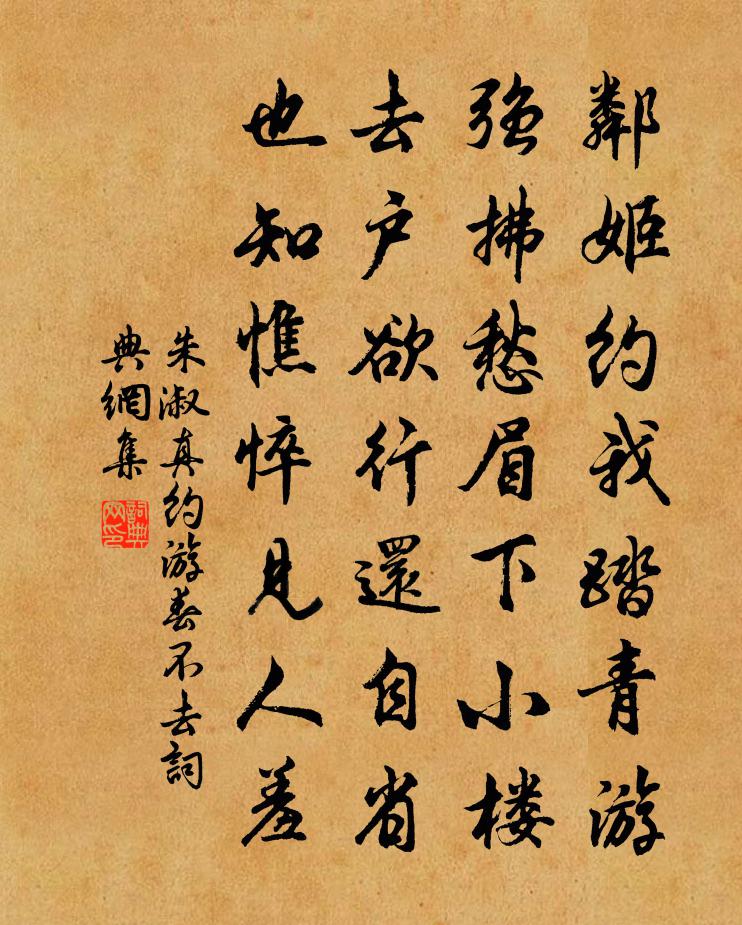 鄰姬约我踏青游
强拂愁眉下小楼
去户欲行還自省
也知憔悴见人羞
朱淑真约游春不去詞
典網集
詞典
网印